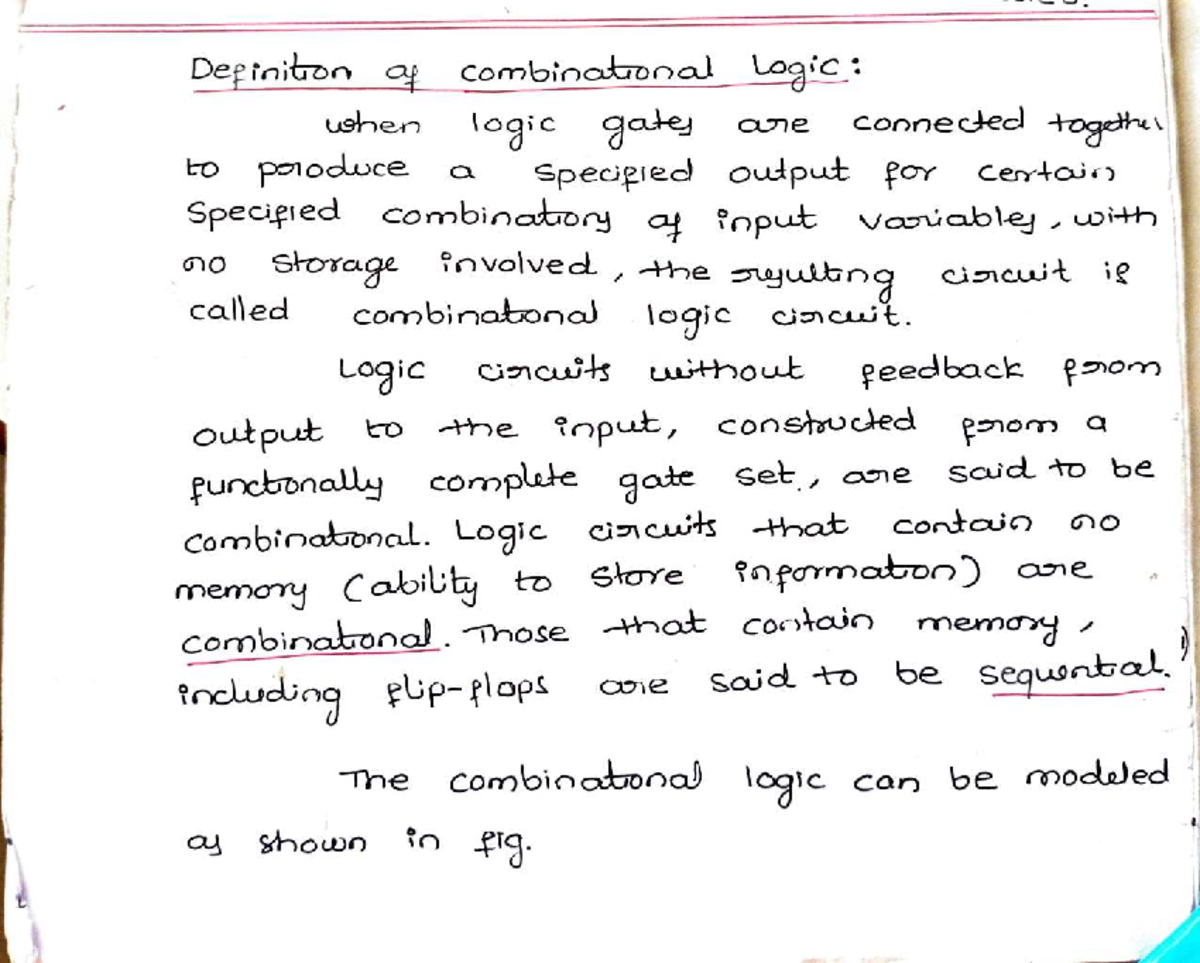 Definition of combinational Logic:
when logic gates are connected together
to produce a specified output for certain
Specified combinations of input variables, with
no storage involved, the resulting circuit is
called combinational logic circuit.
Logic circuits without feedback from
output to the input, constructed from a
functionally complete gate set, are said to be
combinational. Logic circuits that contain no
memory (ability to store information) are
combinational. Those that contain memory,
including flip-flops are said to be sequential.
The combinational logic can be modeled
as shown in fig.